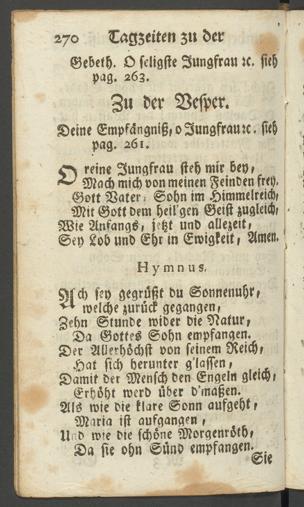 270 Tagzeiten zu der
Gebeth. O seligste Jungfrau ꝛc. sieh
pag. 263.
Zu der Vesper.
Deine Empfängniß, o Jungfrau ꝛc. sieh
pag. 261.
O reine Jungfrau steh mir bey,
Mach mich von meinen Feinden frey.
Gott Vater, Sohn im Himmelreich,
Mit Gott dem heil'gen Geist zugleich,
Wie Anfangs, jetzt und allezeit,
Sey Lob und Ehr in Ewigkeit, Amen.
Hymnus.
Ach sey gegrüßt du Sonnenuhr,
welche zurück gegangen,
Zehn Stunde wider die Natur,
Da Gottes Sohn empfangen.
Der Allerhöchst von seinem Reich,
Hat sich herunter g'lassen,
Damit der Mensch den Engeln gleich,
Erhöht werd über d'maßen.
Als wie die klare Sonn aufgeht,
Maria ist aufgangen,
Und wie die schöne Morgenröth,
Da sie ohn Sünd empfangen.
Sie